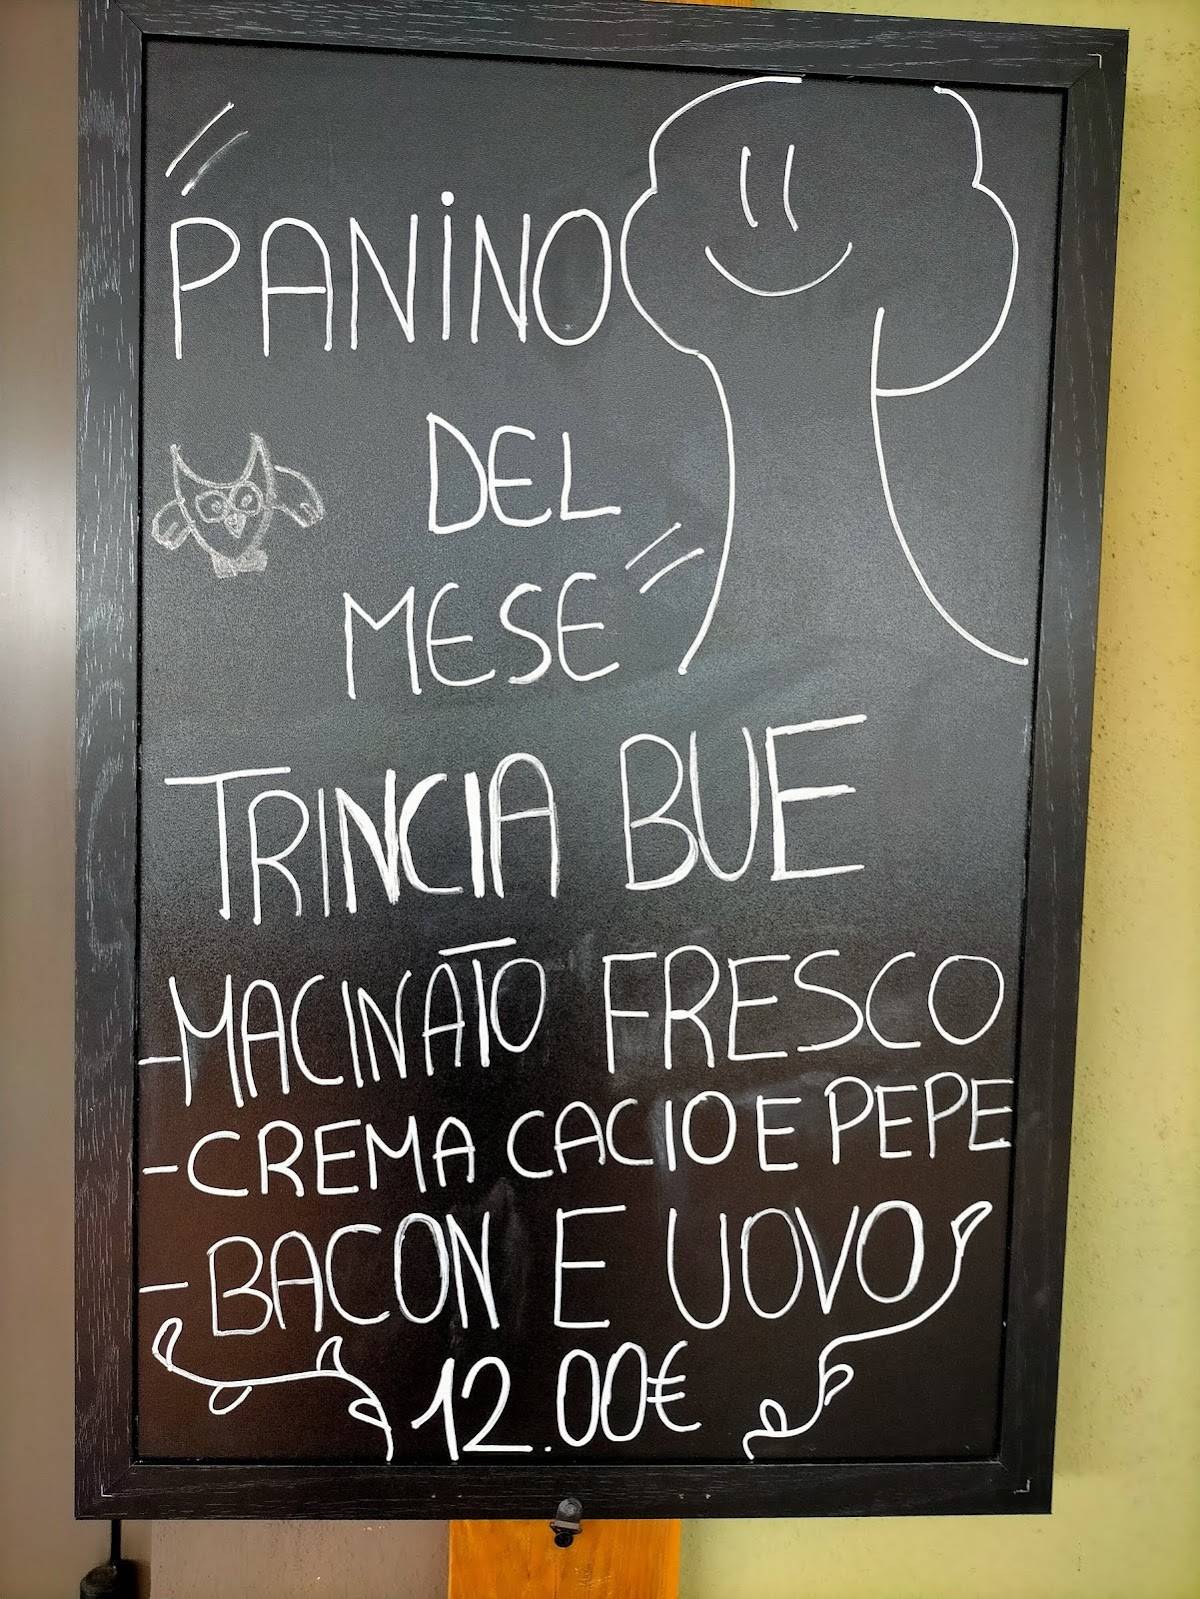 PANiNO
DEL
MESE
TRINCIA BUE
-MACINATO FRESCO
-CREMA CACIO E PEPE
-BACON E UOVO
12.00€